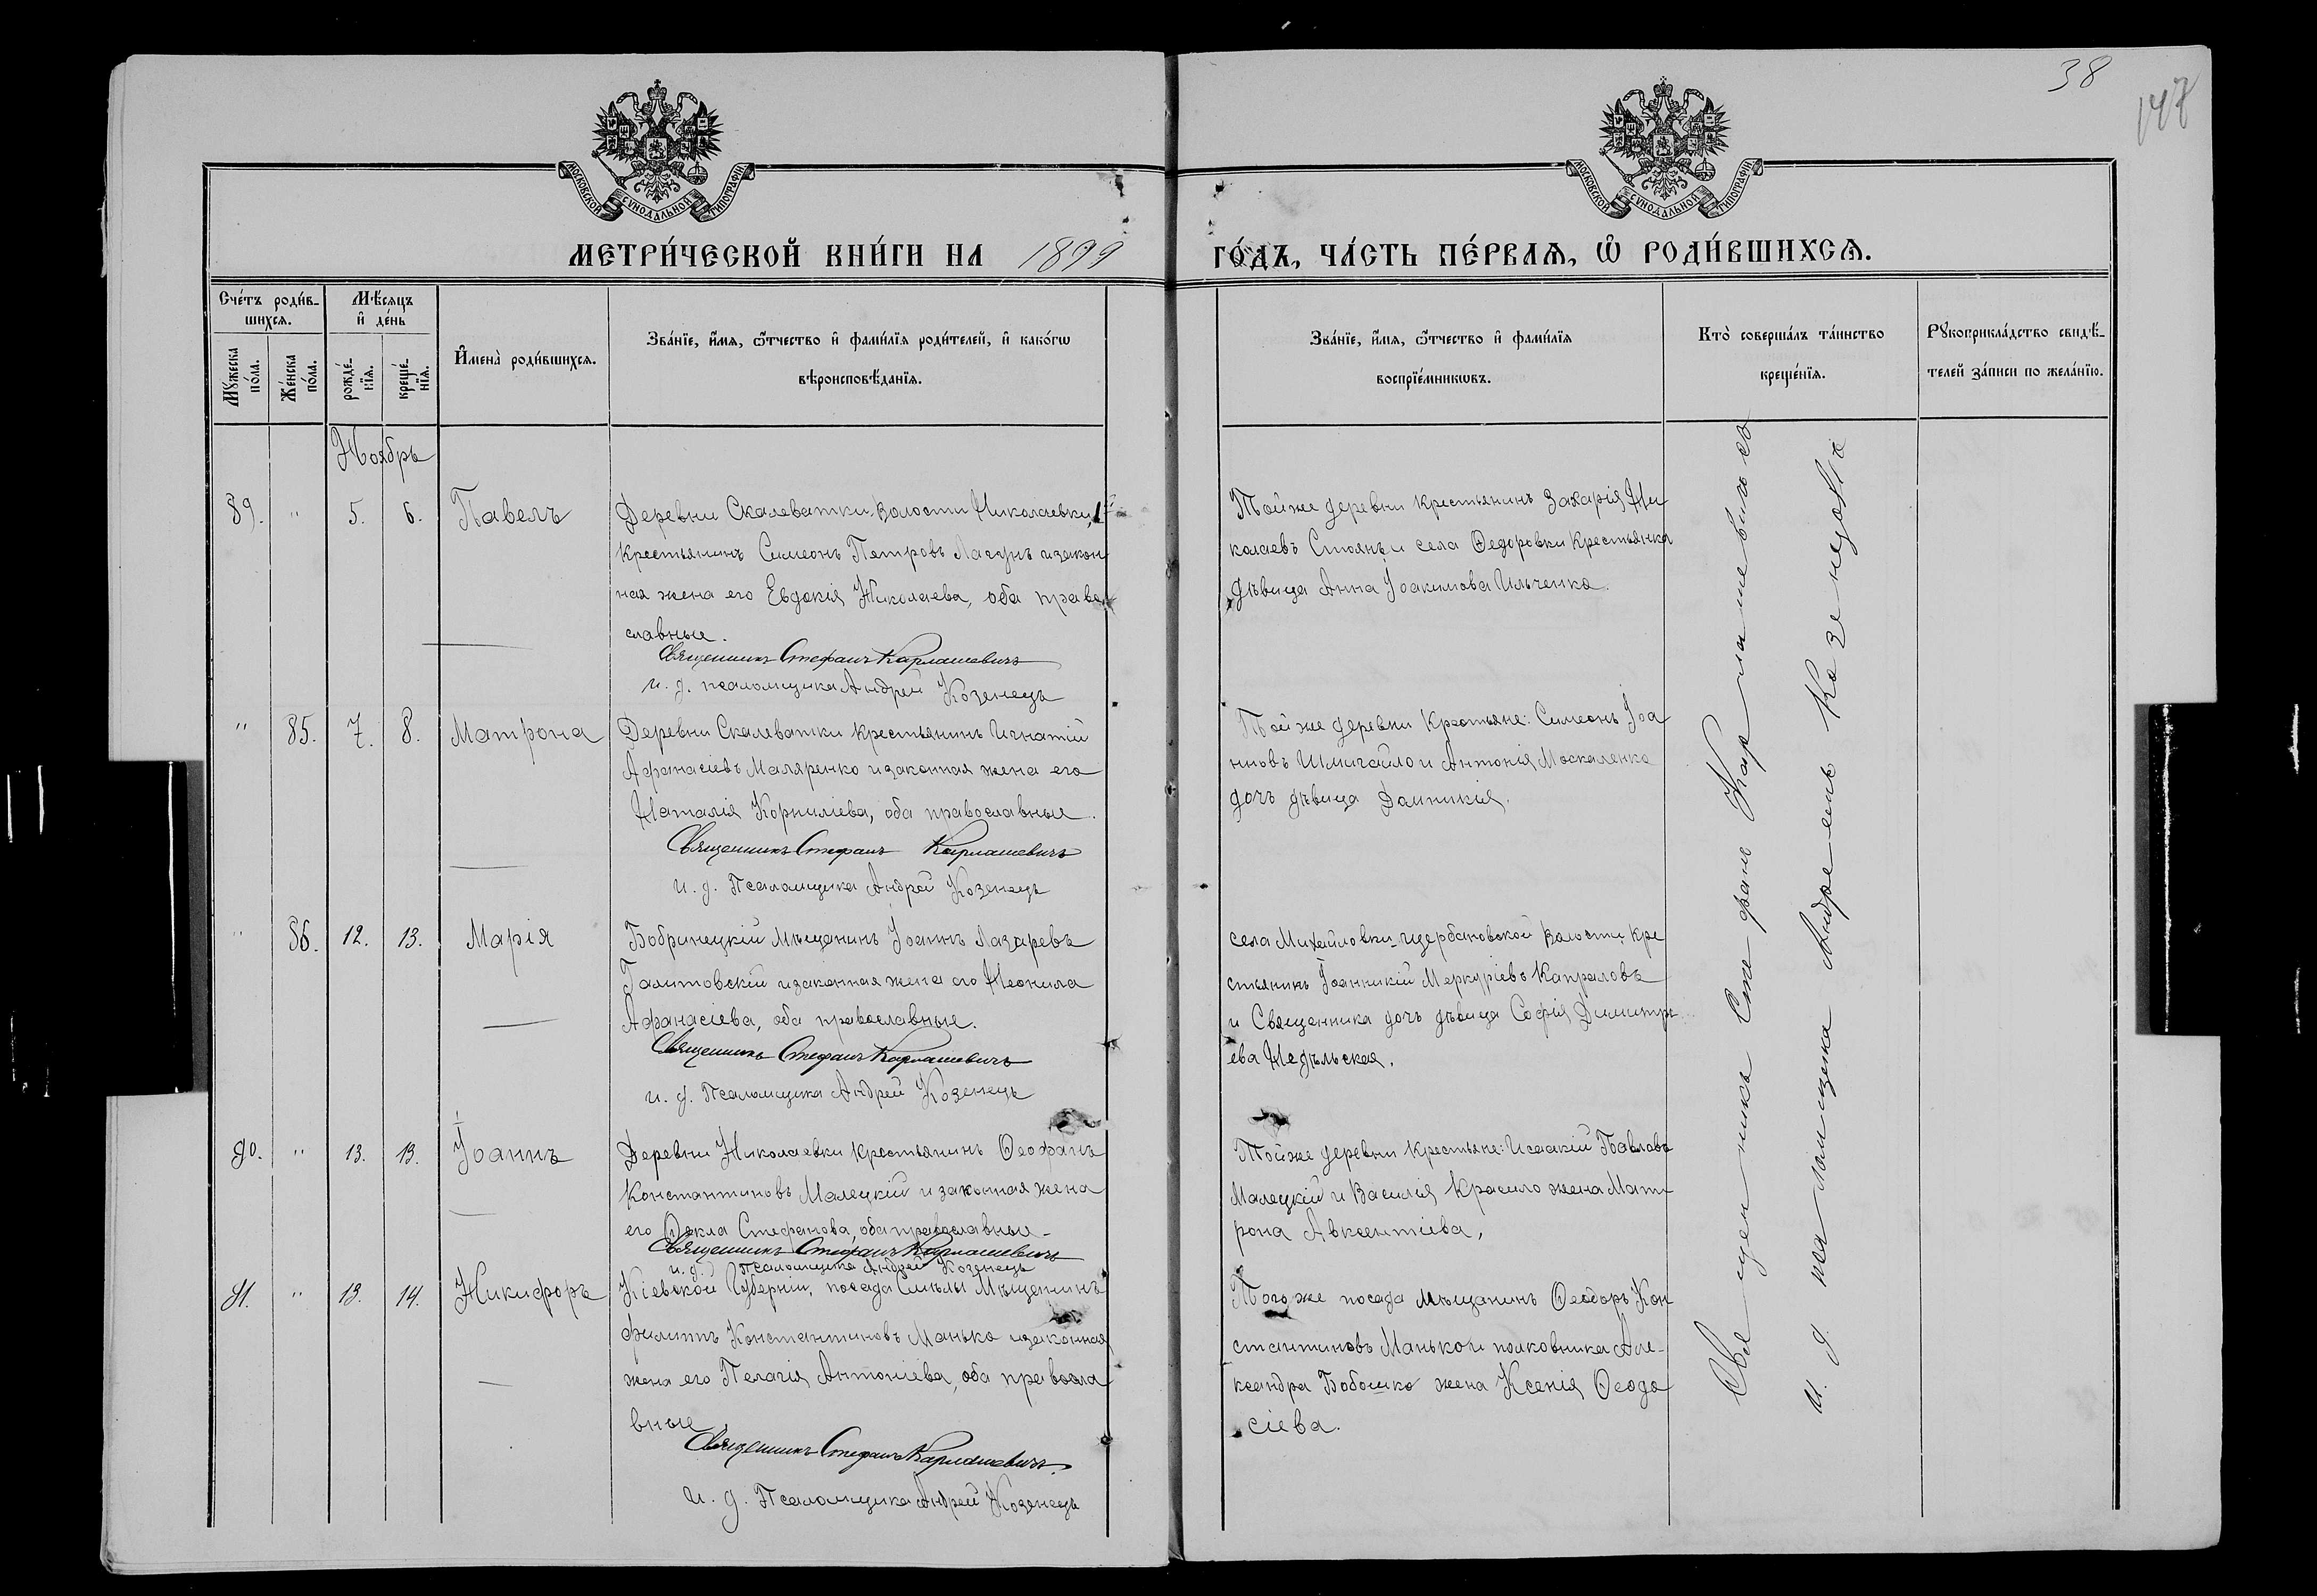 38
147
МОСКОВСКОЙ СѴНОДАЛЬНОЙ ТИПОГРАФІИ.
МОСКОВСКОЙ СѴНОДАЛЬНОЙ ТИПОГРАФІИ.
МЕТРИ́ЧЕСКОЙ КНИ́ГИ НА 1899
ГО́ДЪ, ЧА́СТЬ ПЕ́РВАѦ, Ѡ РОДИ́ВШИХСѦ.
Сче́тъ роди́в-
шихсѧ.
Мꙋжеска по́ла.
Же́нска по́ла.
Мѣ́сѧцъ
и҆ де́нь
рожде́-
нїѧ.
креще́-
нїѧ.
И҆мена̀ роди́вшихсѧ.
Зва́нїе, и҆́мѧ, ѻ҆́тчество и҆ фами́лїѧ роди́телей, и҆ како́гѡ
вѣроисповѣ́данїѧ.
Зва́нїе, и҆́мѧ, ѻ҆́тчество и҆ фами́лїѧ
воспрїе́мникѡвъ.
Кто̀ соверша́лъ та́инство
креще́нїѧ.
Рꙋкоприкла́дство свидѣ́-
телей за́писи по жела́нїю.
Ноябрь
89. " 5. 6. Павелъ
Деревни Скалеватки Волости Николаевки 1й
крестьянинъ Симеонъ Петровъ Лагунъ и закон
ная жена его Евдокія Николаева, оба право
славные.
Священникъ Стефанъ Карлашевичъ
и. д. псаломщика Андрей Козенецъ
Той же деревни крестьянинъ Захарія Ни
колаевъ Стоянъ и села Ѳедоровки крестьянка
дѣвица Анна Іоакимова Ильченко.
" 85. 7. 8. Матрона
Деревни Скалеватки крестьянинъ Игнатій
Афанасіевъ Маляренко и законная жена его
Наталія Корниліева, оба православные.
Священникъ Стефанъ Карлашевичъ
и. д. Псаломщика Андрей Козенецъ
Той же деревни Крестьяне: Симеонъ Іоа
нновъ Шмигайло и Антонія Москаленко
дочь дѣвица Домникія.
" 86. 12. 13. Марія
Бобринецкій Мѣщанинъ Іоаннъ Лазаревъ
Галитовскій и законная жена его Неонила
Афанасіева, оба православные.
Священникъ Стефанъ Карлашевичъ
и. д. Псаломщика Андрей Козенецъ
села Михайловки Щербановской Волости, кре
стьянинъ Іоанникій Меркуріевъ Капраловъ
и Священника дочь дѣвица Софія Димитрі
ева Недѣльская.
90. " 13. 13. Іоаннъ
Деревни Николаевки крестьянинъ Ѳеофанъ
Константиновъ Малецкій и законная жена
его Ѳекла Стефанова, оба православные.
Священникъ Стефанъ Карлашевичъ
и. д. псаломщика Андрей Козенецъ
Той же деревни крестьяне: Исаакій Павловъ
Малецкій и Василія Красило жена Мат-
рона Авксентіева,
91. " 13. 14. Никифоръ
Кіевской Губерніи, посада Смѣлы Мѣщанинъ
Филиппъ Константиновъ Манько и законная
жена его Пелагія Антоніева, оба правосла
вные
Священникъ Стефанъ Карлашевичъ.
и. д. Псаломщика Андрей Козенецъ
Того же посада мѣщанинъ Ѳеодоръ Кон
стантиновъ Манько и полковника Але-
ксандра Бобошко жена Ксенія Ѳеодо
сіева.
Священникъ Стефанъ Карлашевичъ съ
и. д. псаломщика Андреемъ Козенцомъ